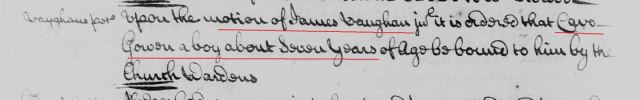 Vaughans peto Upon the motion of James Vaughan junr it is ordered that
Gowen a boy about Seven Years of Age be bound to him by the
Church Wardens